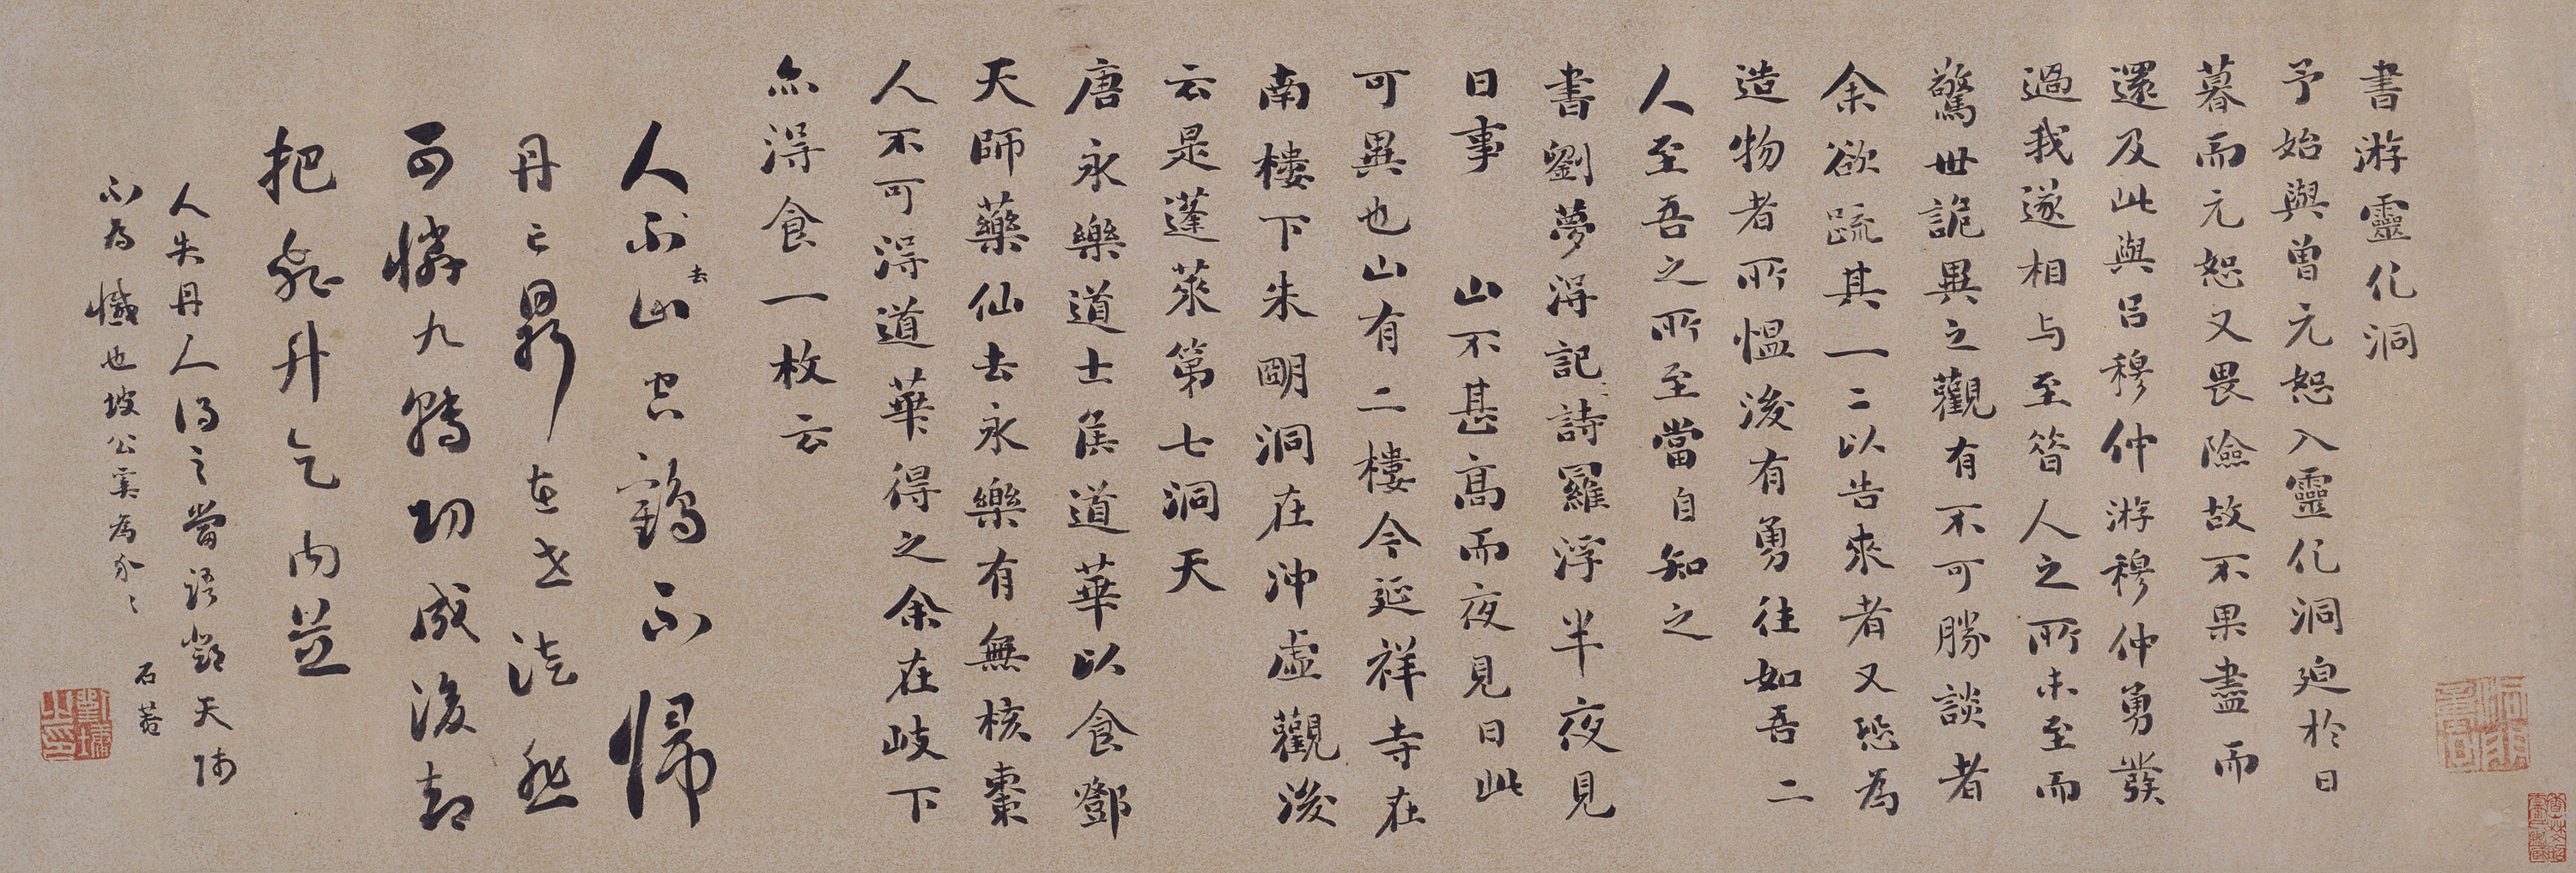 書游靈化洞
予始與曾元恕入靈化洞廹於日
暮而元恕又畏險故不果盡而
還及此與呂穆仲游穆仲勇發
過我遂相与至昔人之所未至而
驚世詭異之觀有不可勝談者
余欲疏其一二以告來者又恐為
造物者所愠後有勇往如吾二
人至吾之所至當自知之
書劉夢得記詩羅浮半夜見
日事 山不甚高而夜見日此
可異也山有二樓今延祥寺在
南樓下朱明洞在沖虛觀後
云是蓬萊第七洞天
唐永樂道士侯道華以食鄧
天師藥仙去永樂有無核棗
人不可得道華得之余在岐下
亦得食一枚云
人不山空鶴不歸
去
丹亡鼎在世徒悲
可憐九轉功成後卻
把飛升乞內芝
人失丹人得之當語鄧天師
不為憾也坡公寓為爾爾
石菴
劉墉之印